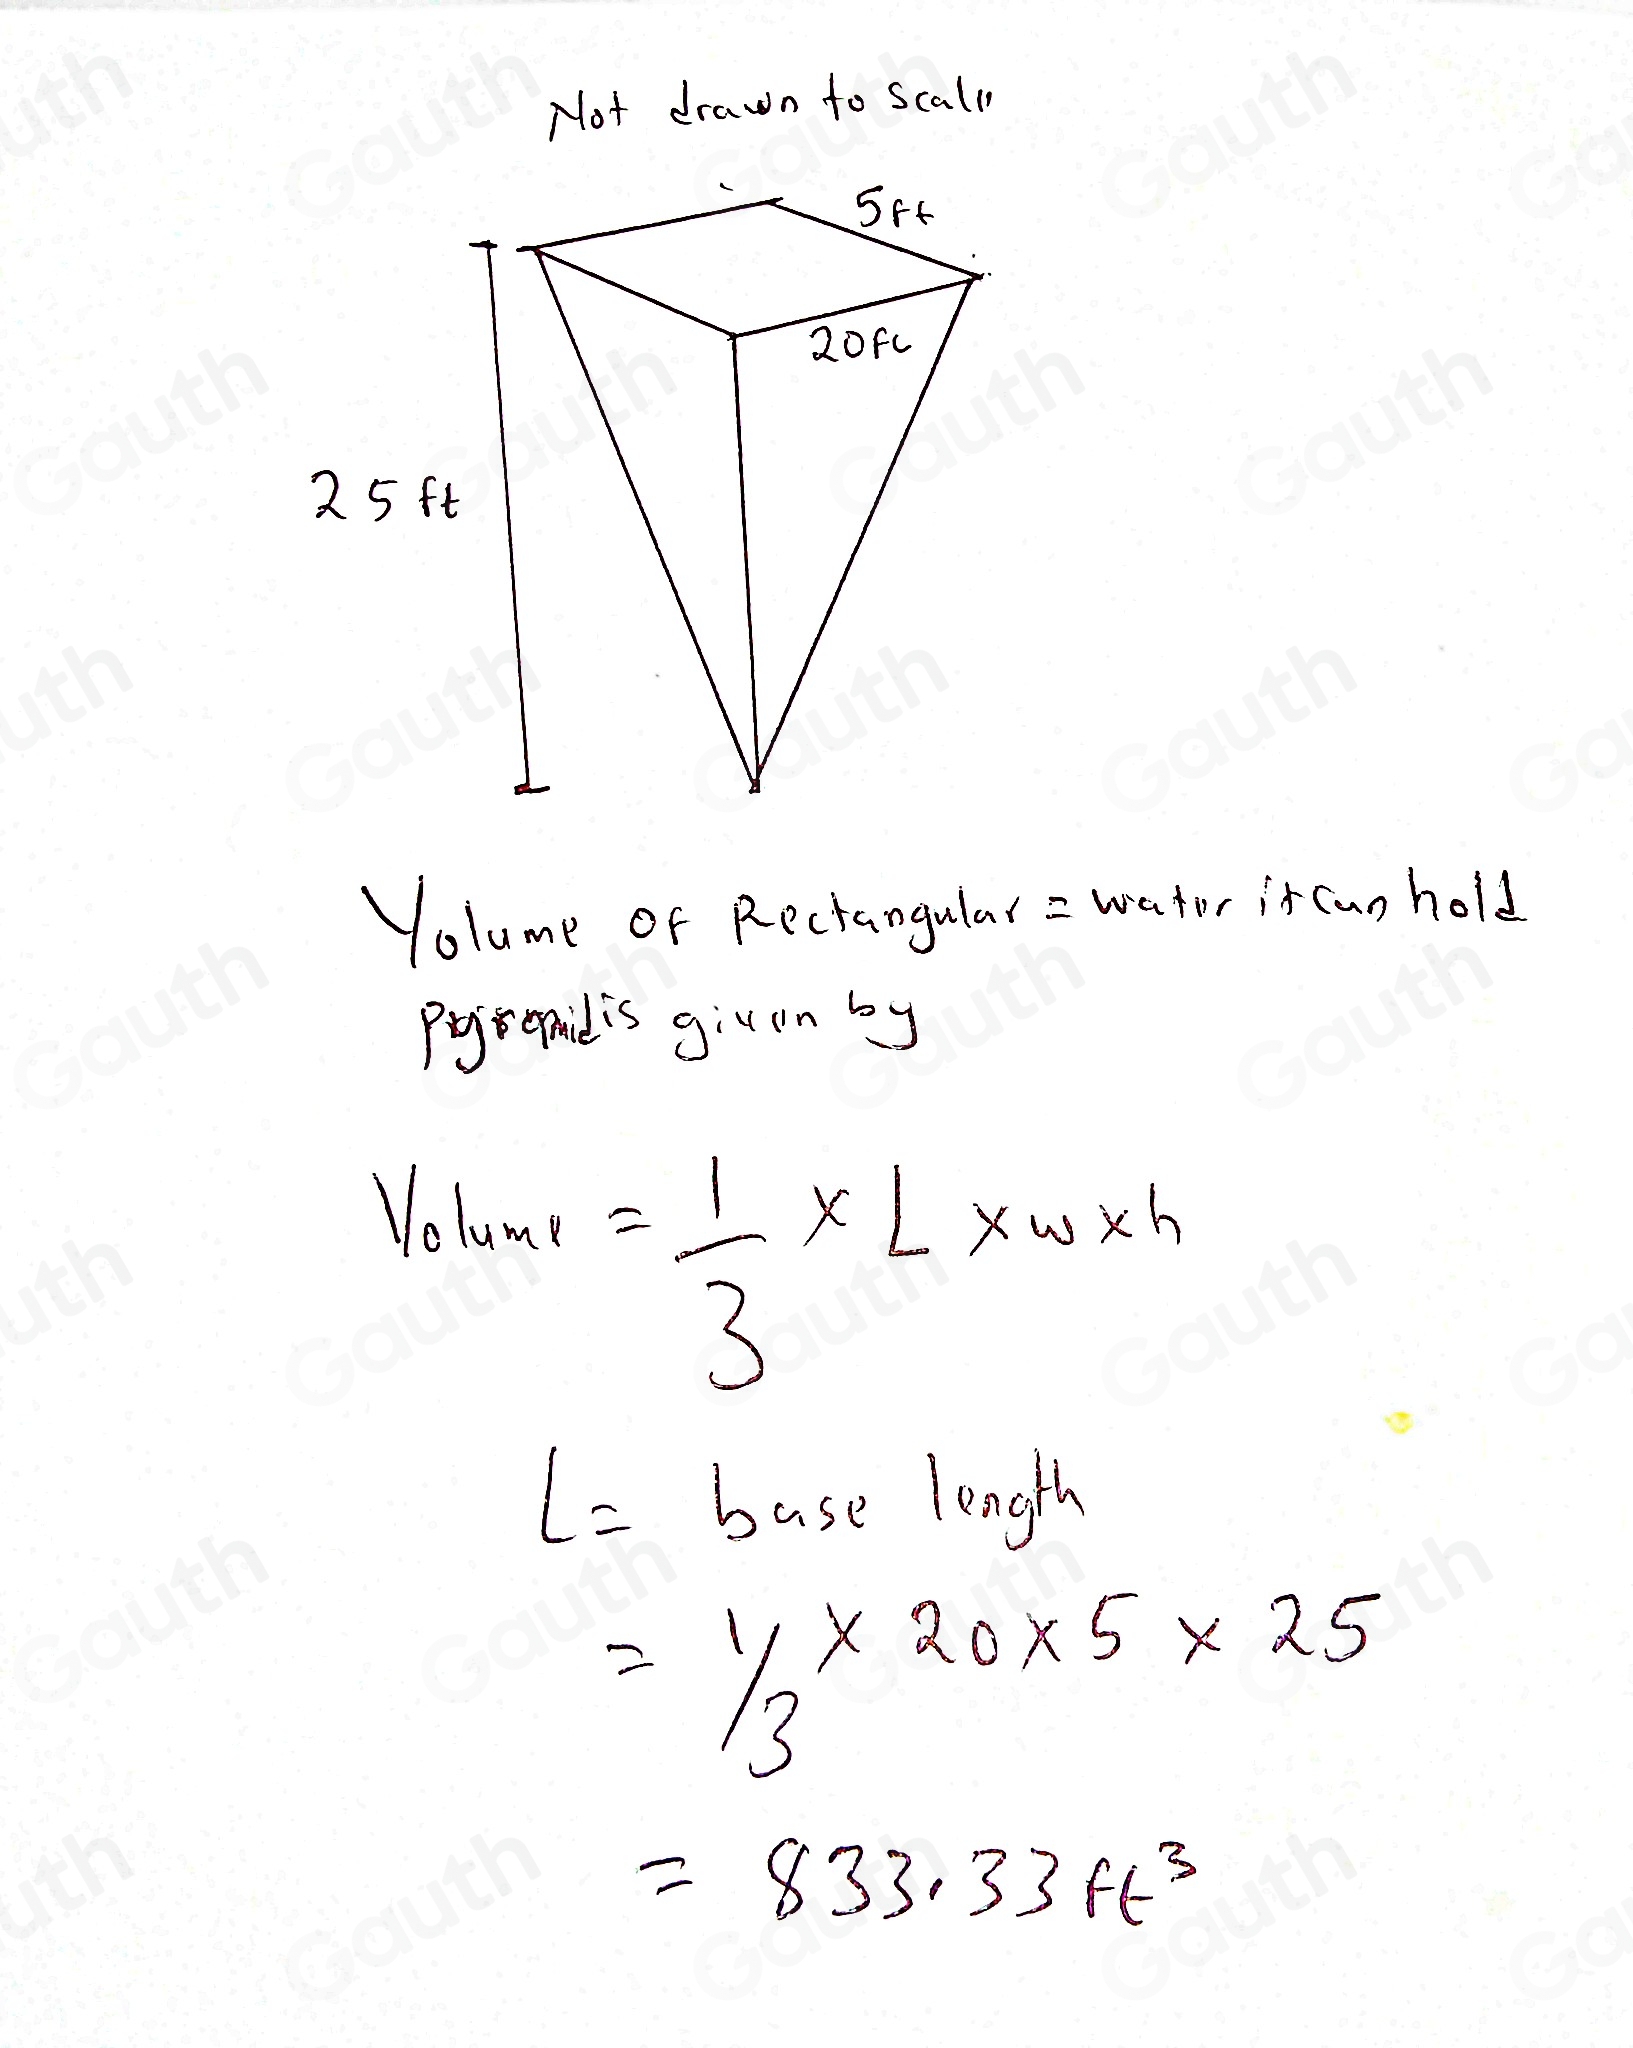 Not drawn to scale
5ft
20ft
25 ft
Volume of Rectangular = water it can hold
is given by
Volume = 1/3 x L x w x h
L = base length
= 1/3 x 20 x 5 x 25
= 833.33 ft³
Gauth